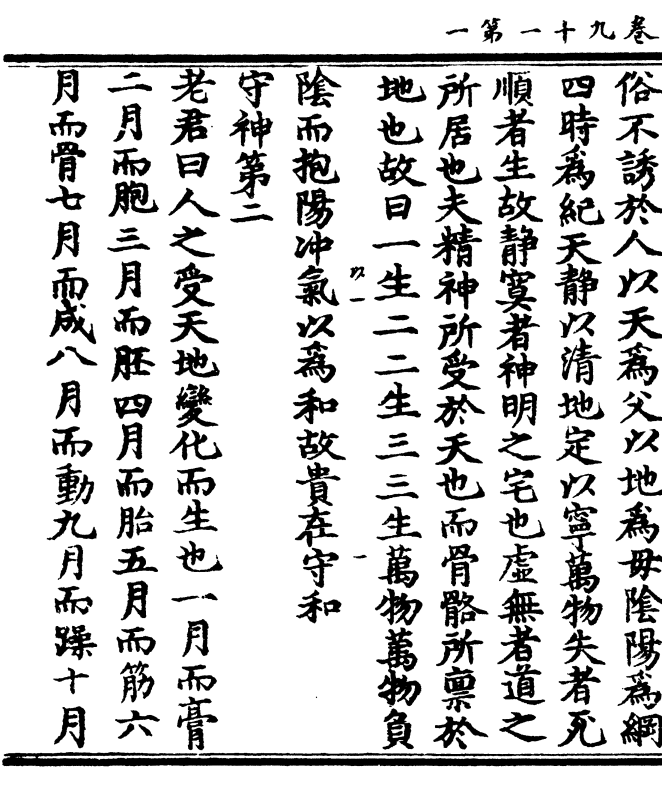 卷九十一第一
俗不誘於人以天爲父以地爲毋陰陽爲綱
四時爲紀天静以清地定以寧萬物失者死
順者生故静寞者神明之宅也虛無者道之
所居也夫精神所受於天也而骨骼所禀於
地也故曰一生二二生三三生萬物萬物負
以一
一
陰而抱陽冲氣以爲和故貴在守和
守神第二
老君曰人之受天地變化而生也一月而膏
二月而胞三月而胚四月而胎五月而筋六
月而骨七月而成八月而動九月而躁十月